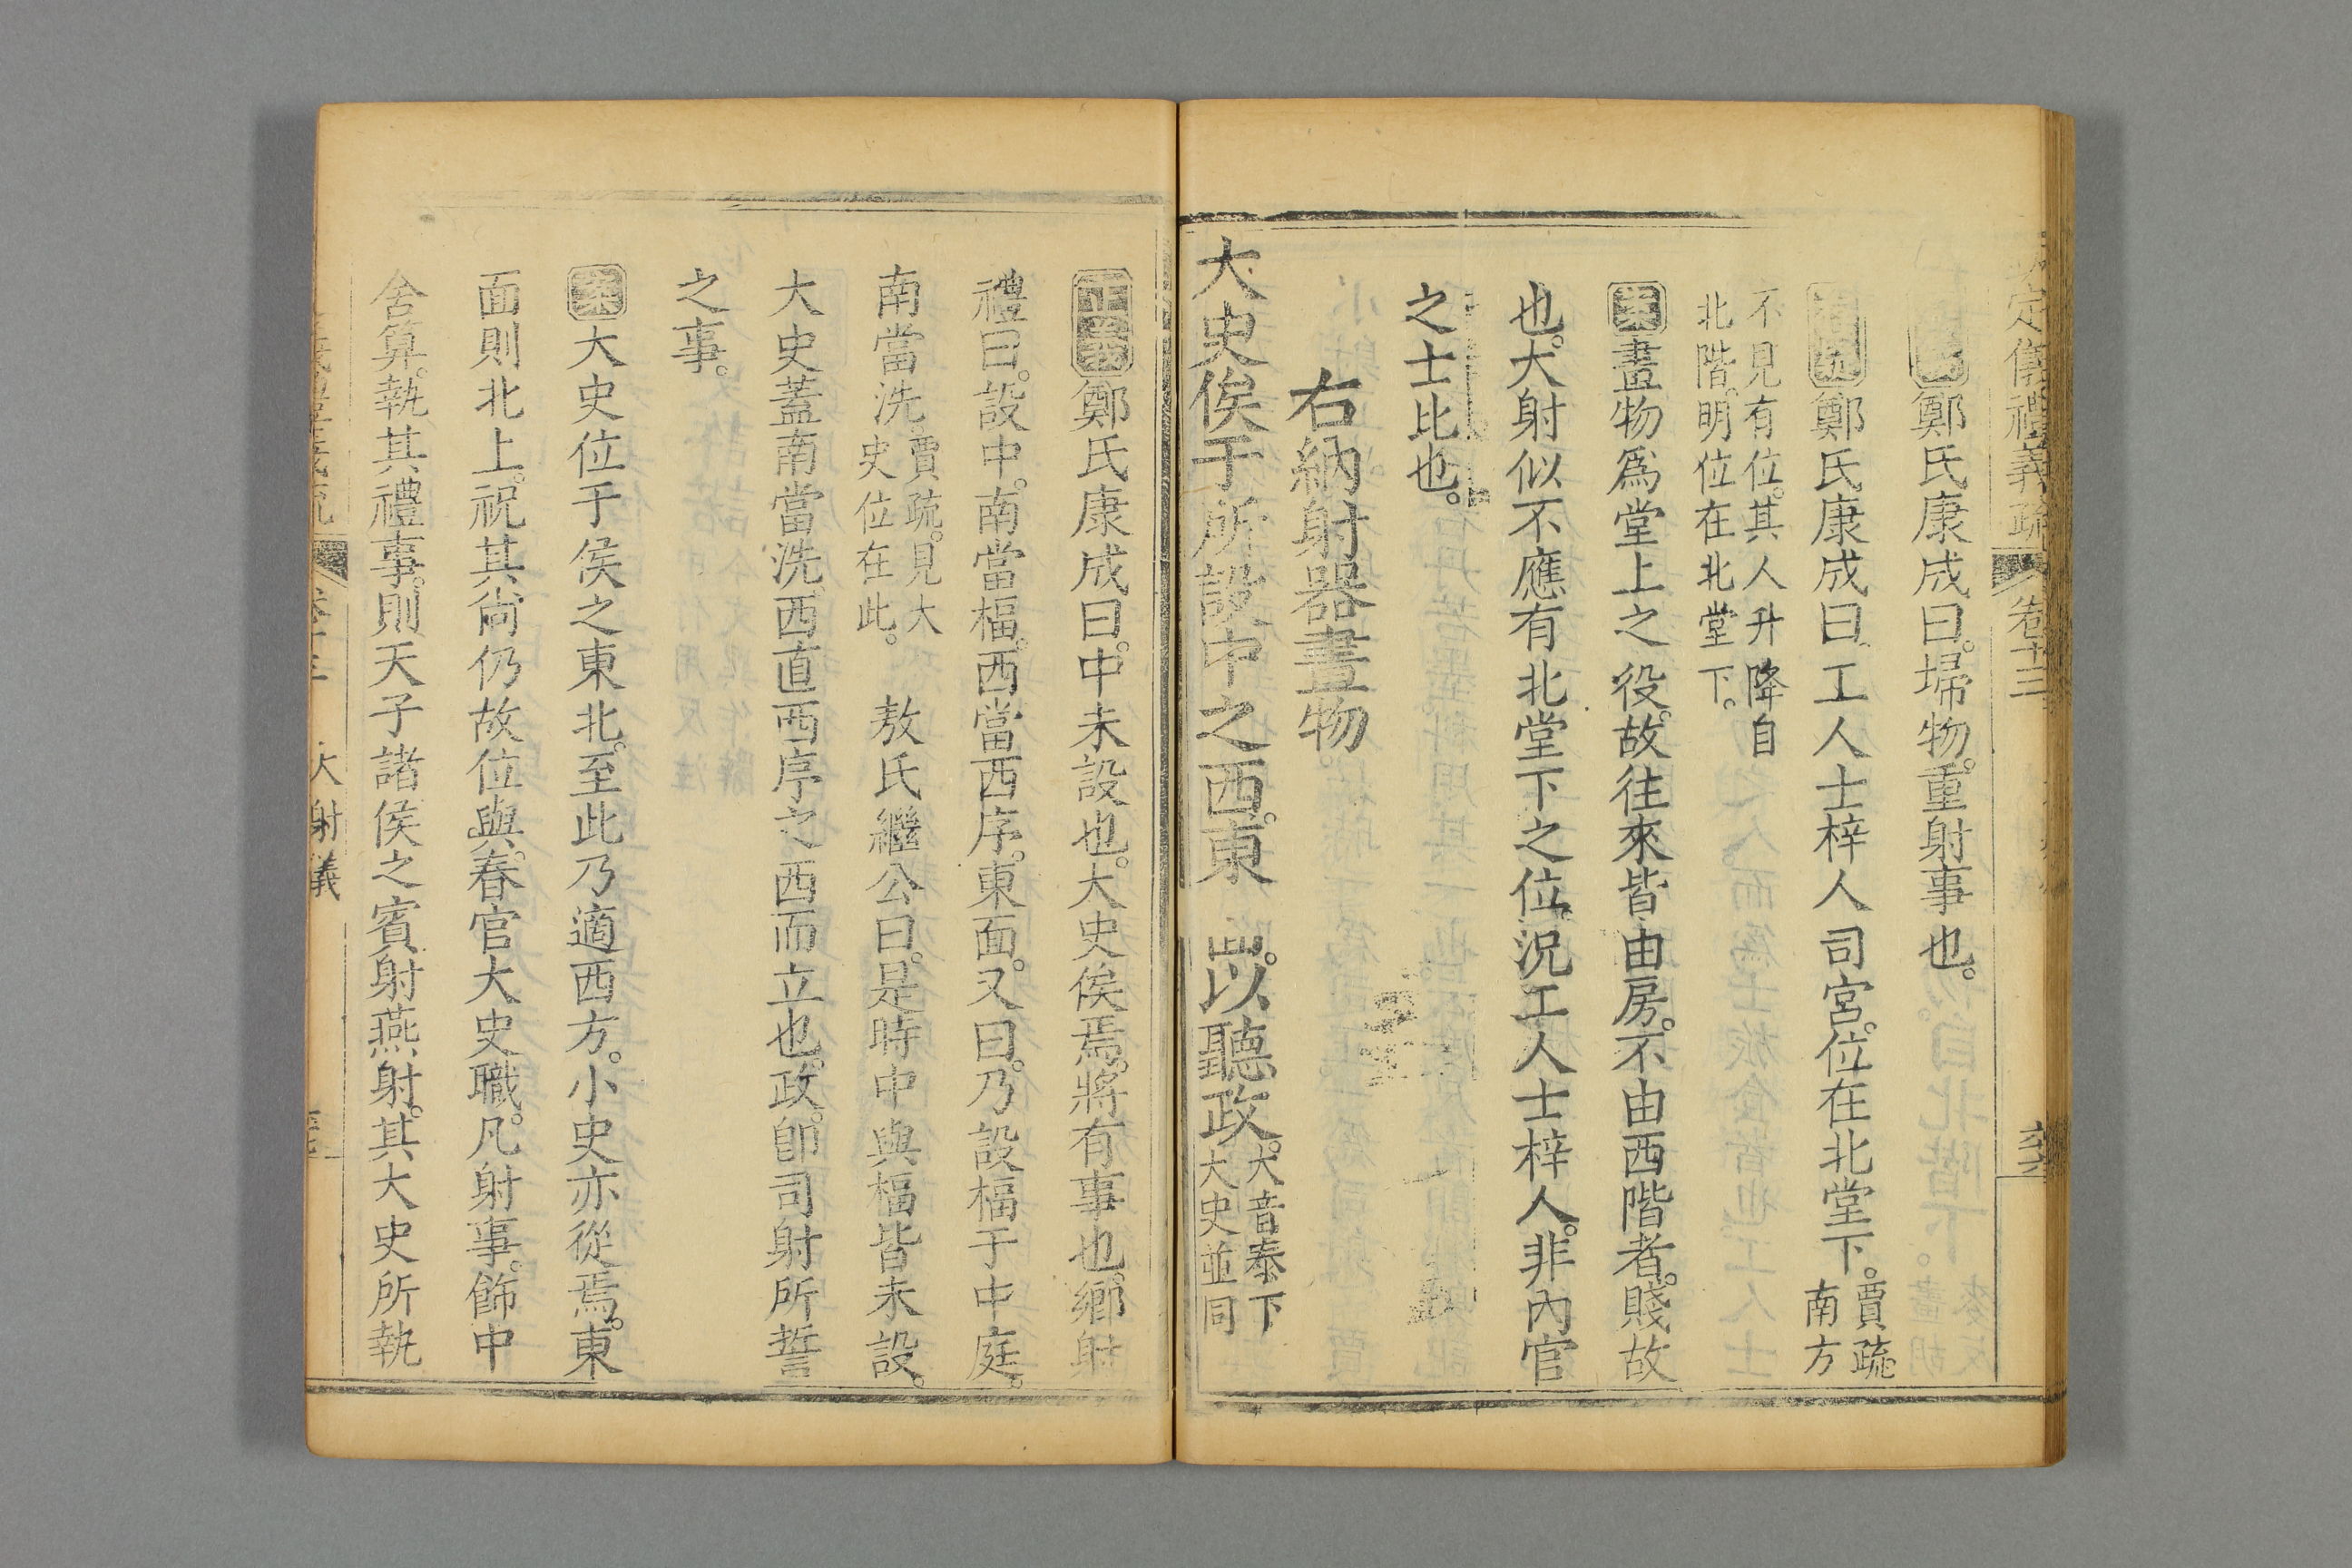 定儀禮義疏 卷十三
鄭氏康成曰。埽物。重射事也。
鄭氏康成曰。工人士梓人司宮。位在北堂下。賈疏。南方
不見有位。其人升降自北階。明位在北堂下。
案畫物爲堂上之役。故往來皆由房。不由西階者。賤故
也。大射似不應有北堂下之位。況工人士梓人。非內官
之士比也。
右納射器畫物
大史俟于所設中之西。東面。以聽政。大音泰下大史並同
正義鄭氏康成曰。中未設也。大史俟焉。將有事也。鄉射
禮曰。設中。南當楅。西當西序。東面。又曰。乃設楅于中庭。
南當洗。賈疏。見大史位在此。 敖氏繼公曰。是時中與楅皆未設。
大史蓋南當洗。西直西序之西而立也。政。卽司射所誓
之事。
案大史位于侯之東北。至此乃適西方。小史亦從焉。東
面則北上。祝其尚仍故位與。春官大史職。凡射事。飾中
舍算。執其禮事。則天子諸侯之賓射燕射。其大史所執
大射儀